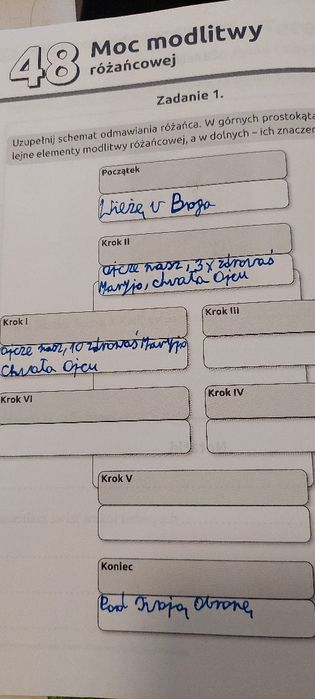 48
Moc modlitwy
różańcowej
Zadanie 1.
Uzupełnij schemat odmawiania różańca. W górnych prostokąta
lejne elementy modlitwy różańcowej, a w dolnych – ich znaczen
Początek
Wieżę v Boga
Krok II
Ojcze nasz, 3x zdrowaś
Maryjo, chwała Ojcu
Krok I
Krok III
Ojcze nasz, 10 zdrowaś Maryjo
Chwała Ojcu
Krok VI
Krok IV
Krok V
Koniec
Pod Twoją Obronę